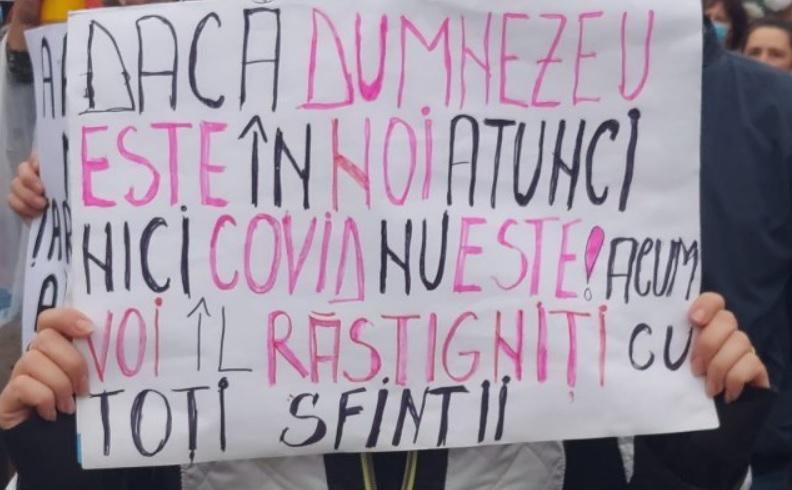 DACĂ DUMNEZEU
ESTE ÎN NOI ATUNCI
NICI COVID NU ESTE! ACUM
VOI ÎL RĂSTIGNIȚI CU
TOȚI SFINTII